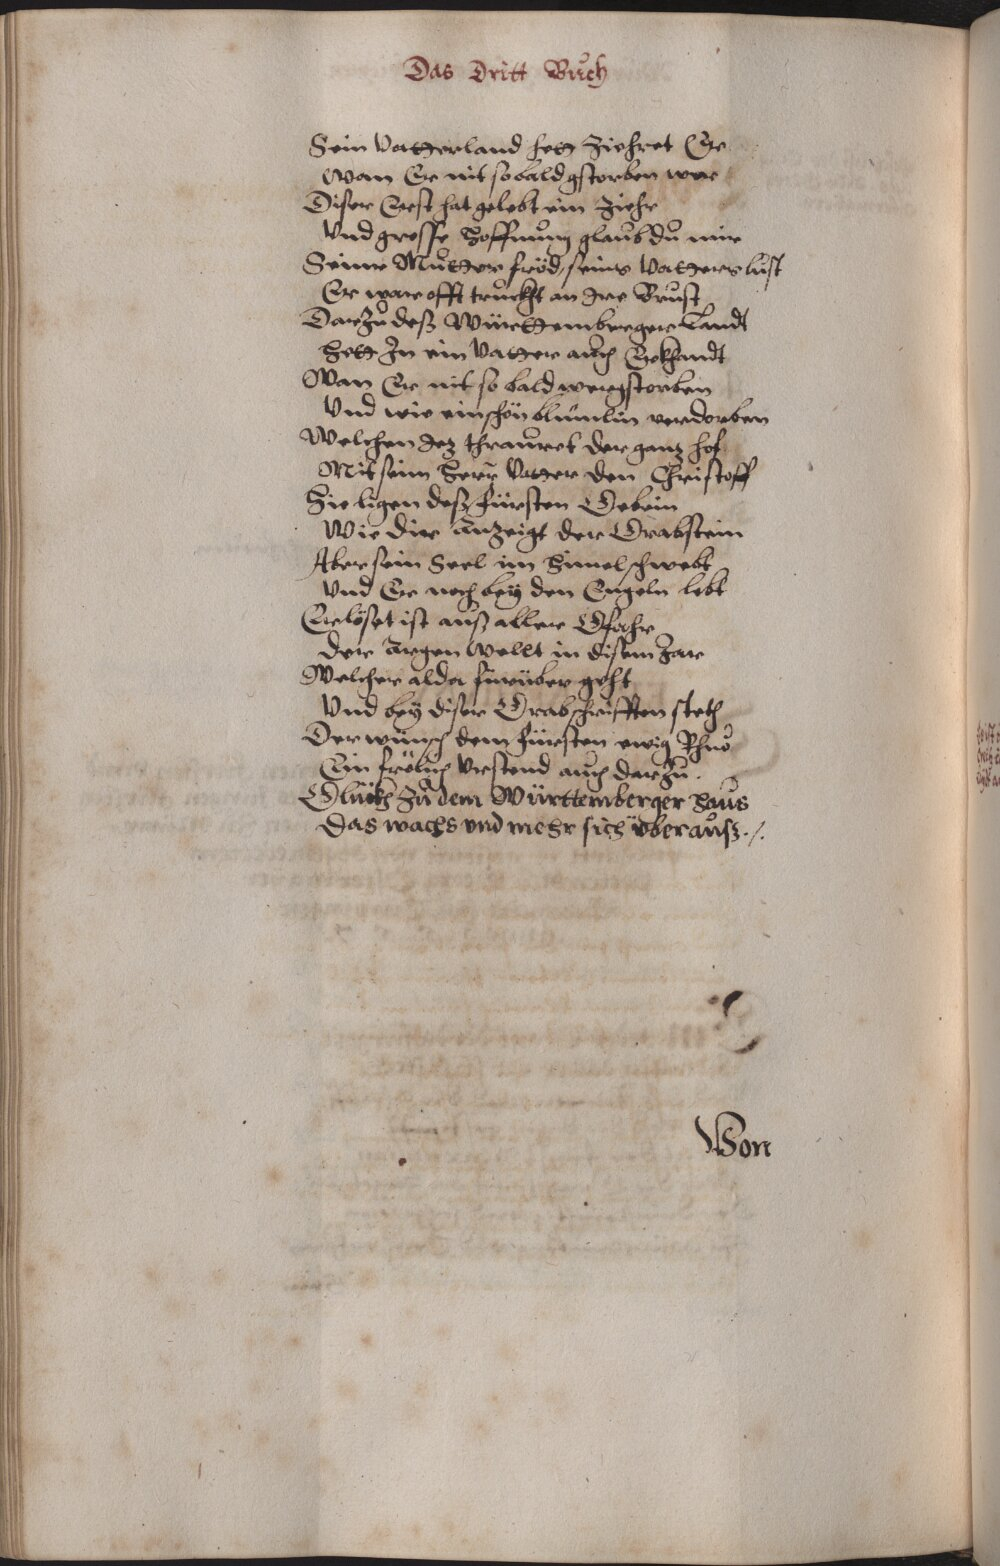 Das Dritt Buch
Sein Vatterland hett Ziehret Er
Wan Er nit so bald gstorben wer
Diser Erst hat gelebt ein Ziehr
Vnd grosse Hoffnung glaub du mir
Seiner Mutter fröd, seins Vatters lust
Er ware offt truckht an Ire Brust
Darzu deß Württemberger Landt
Hett In ein Vatter auch Erkhandt
Wan Er nit so bald wer gstorben
Vnd wie ein schön blumlin verdorben
Welchen Jez thrauret der ganz hof
Mit seim Herr Vatter den Christoff
Hie ligen deß fürsten Gebein
Wie dir Anzeigt der Grabstein
Aber sein Seel im Himel schwebt
Vnd Er noch bey den Engeln lebt
Erlöset ist auß aller Gfahr
Der Argen Wellt in disem Jar
Welcher alda fürüber geht
Vnd bey diser Grabschrifften steth
Der wünsch dem fürsten ewig Rhuo
Ein frölich Vrstend auch darzu.
Glückh zu dem Württemberger Haus
Das wachs vnd mehr sich überauß ./.
Von